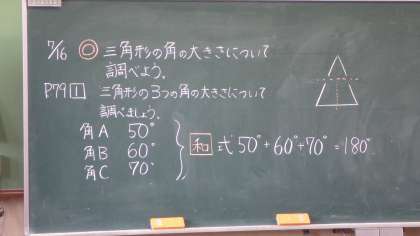 7/16 ◎ 三角形の角の大きさについて
調べよう。
P79 1 三角形の3つの角の大きさについて
調べましょう。
角A 50°
角B 60°
角C 70°
和 式 50°+60°+70°=180°